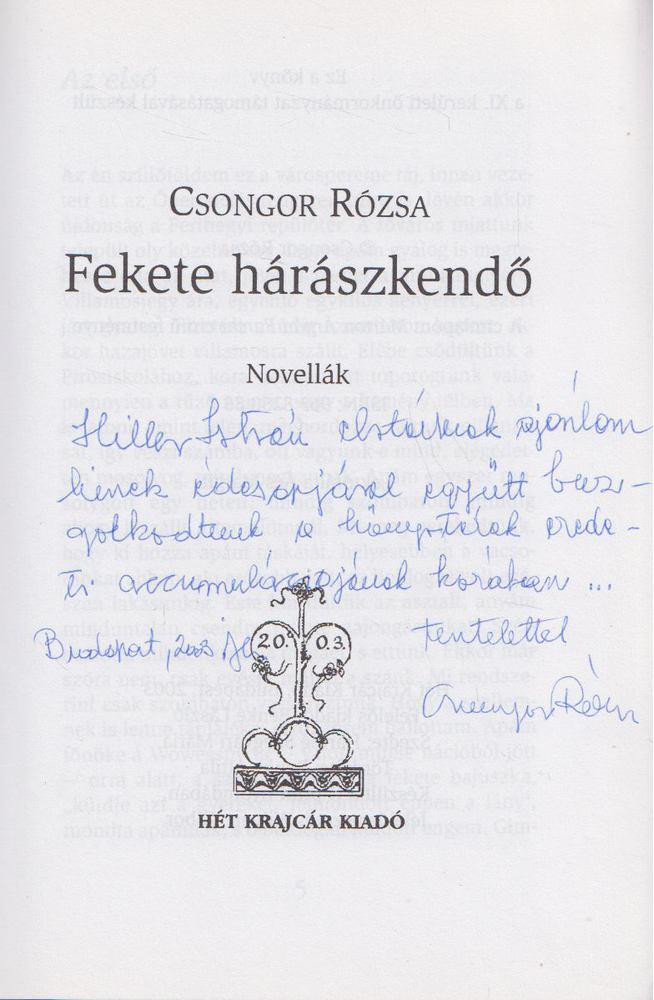 CSONGOR RÓZSA
Fekete hárászkendő
Novellák
Hiller István elvtársnak ajánlom
kinek édesapjával együtt buzgólkodtunk a
könyvtárak eredeti accumulációjának korában ...
Budapest, 2003 júl.
tisztelettel
Csongor Rózsa
20 03
HÉT KRAJCÁR KIADÓ